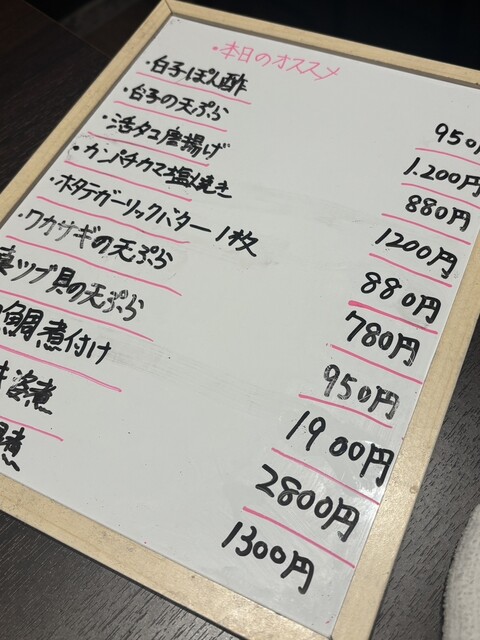 ・本日のオススメ
・白子ぽん酢 950円
・白子の天ぷら 1.200円
・活タコ唐揚げ 880円
・カンパチカマ塩焼き 1200円
・ホタテガーリックバター1枚 880円
・ワカサギの天ぷら 780円
真ツブ貝の天ぷら 950円
鯛煮付け 1900円
姿煮 2800円
煮 1300円